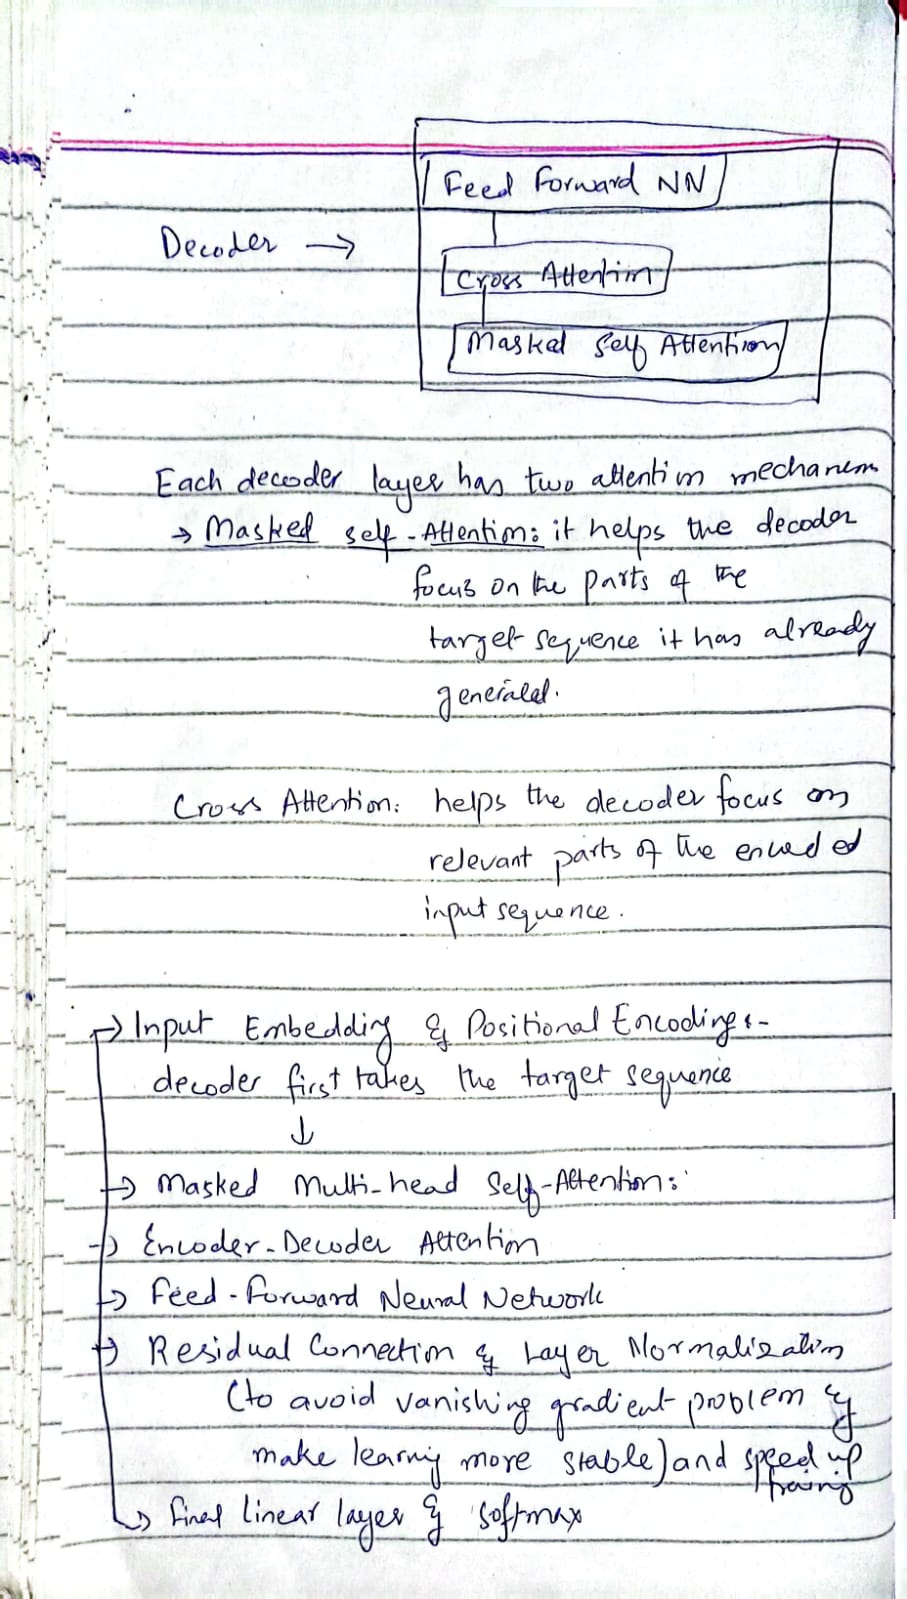 Feed Forward NN
Decoder →
Cross Attention
Masked Self Attention
Each decoder layer has two attention mechanism
→ Masked self-Attention: it helps the decoder
focus on the parts of the
target sequence it has already
generated.
Cross Attention: helps the decoder focus on
relevant parts of the encoded
input sequence.
→ Input Embedding & Positional Encoding:-
decoder first takes the target sequence
↓
→ Masked Multi-head Self-Attention:
→ Encoder-Decoder Attention
→ Feed-Forward Neural Network
→ Residual Connection & Layer Normalization
(to avoid vanishing gradient problem &
make learning more stable) and speed up
training
→ Final linear layer & softmax